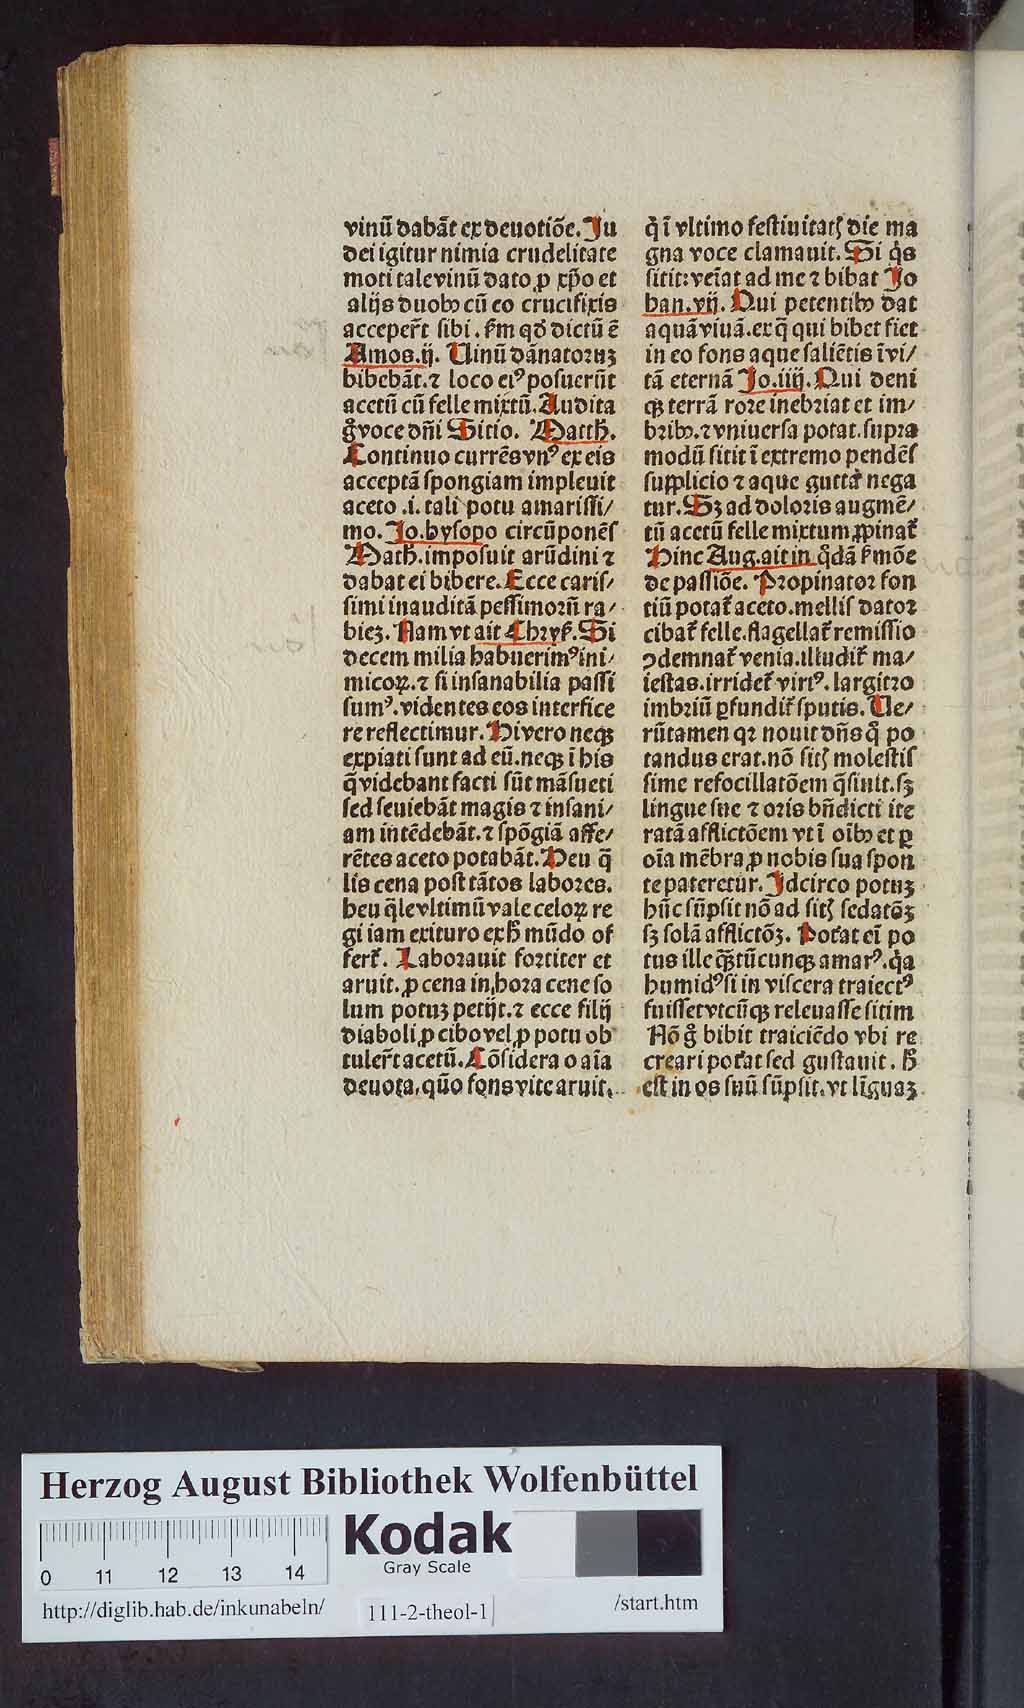 vinū dabāt ex deuotiōe. Ju
dei igitur nimia crudelitate
moti tale vinū dato ꝓ xp̄o et
alijs duobꝰ cū eo crucifixis
acceper̄t sibi. ẜm qd̓ dictū ē
Amos .ij. Uinū dānatoruꝫ
bibebāt. ⁊ loco eiꝰ posuerūt
acetū cū felle mixtū. Audita
g̊ voce dn̄i Sitio. Matth.
Continuo currēs vnꝰ ex eis
acceptā spongiam impleuit
aceto .i. tali potu amarissi/
mo. Jo. hysopo circūponēs
Math. imposuit arūdini ⁊
dabat ei bibere. Ecce caris/
simi inauditā pessimorū ra/
bieꝫ. Nam vt ait Chryẜ. Si
decem milia habuerimꝰ ini/
micoꝝ. ⁊ si insanabilia passi
sumꝰ. videntes eos interfice
re reflectimur. Hi vero neqꝫ
expiati sunt ad eū. neqꝫ ī his
q̄ videbant facti sūt māsueti
sed seuiebāt magis ⁊ insani/
am intēdebāt. ⁊ spōgiā affe/
rētes aceto potabāt. Heu q̄
lis cena post tātos labores.
heu q̄le vltimū vale celoꝝ re
gi iam exituro ex hͦ mūdo of
fert̄. Laborauit fortiter et
aruit. ꝓ cena in hora cene so
lum potuꝫ petijt. ⁊ ecce filij
diaboli ꝓ cibo vel ꝓ potu ob
tuler̄t acetū. Cōsidera o aīa
deuota, quō fons vite aruit.
q̓ ī vltimo festiuitatꝭ die ma
gna voce clamauit. Si q̓s
sitit: veīat ad me ⁊ bibat Jo
han. vij. Qui petentibꝰ dat
aquā viuā. ex q̄ qui bibet fiet
in eo fons aque saliētis ī vi/
tā eternā Jo. iiij. Qui deni
qꝫ terrā rore inebriat et im/
bribꝰ. ⁊ vniuersa potat. supra
modū sitit ī extremo pendēs
supplicio ⁊ aque gutta ei nega
tur. Sꝫ ad doloris augmē/
tū acetū felle mixtum ꝓpinat̄
Hinc Aug. ait in q̓dā ẜmōe
de passiōe. Propinator fon
tiū potat̄ aceto. mellis dator
cibat̄ felle. flagellat̄ remissio
ↄdemnat̄ venia. illudit̄ ma/
iestas. irridet̄ virtꝰ. largitro
imbriū ꝑfundit̄ sputis. Ue/
rūtamen qꝛ nouit dn̄s q̊ po
tandus erat. nō sitꝭ molestis
sime refocillatōem q̄siuit. sꝫ
lingue sue ⁊ oris bn̄dicti ite
ratā afflictōem vt ī oībꝰ et ꝑ
oīa mēbra ꝓ nobis sua spon
te pateretur. Idcirco potuꝫ
hūc sūpsit nō ad sitꝭ sedatōꝫ
sꝫ solā afflictōꝫ. Pot̓at eī po
tus ille qꝫtūcunqꝫ amarꝰ. q̓a
humidꝰ si in viscera traiectꝰ
fuisset vtcūqꝫ releuasse sitim
Nō g̊ bibit traiciēdo vbi re
creari pot̓at sed gustauit. hͦ
est in os suū sūpsit. vt līguaꝫ
Herzog August Bibliothek Wolfenbüttel
Kodak
Gray Scale
0 11 12 13 14
http://diglib.hab.de/inkunabeln/ 111-2-theol-1 /start.htm